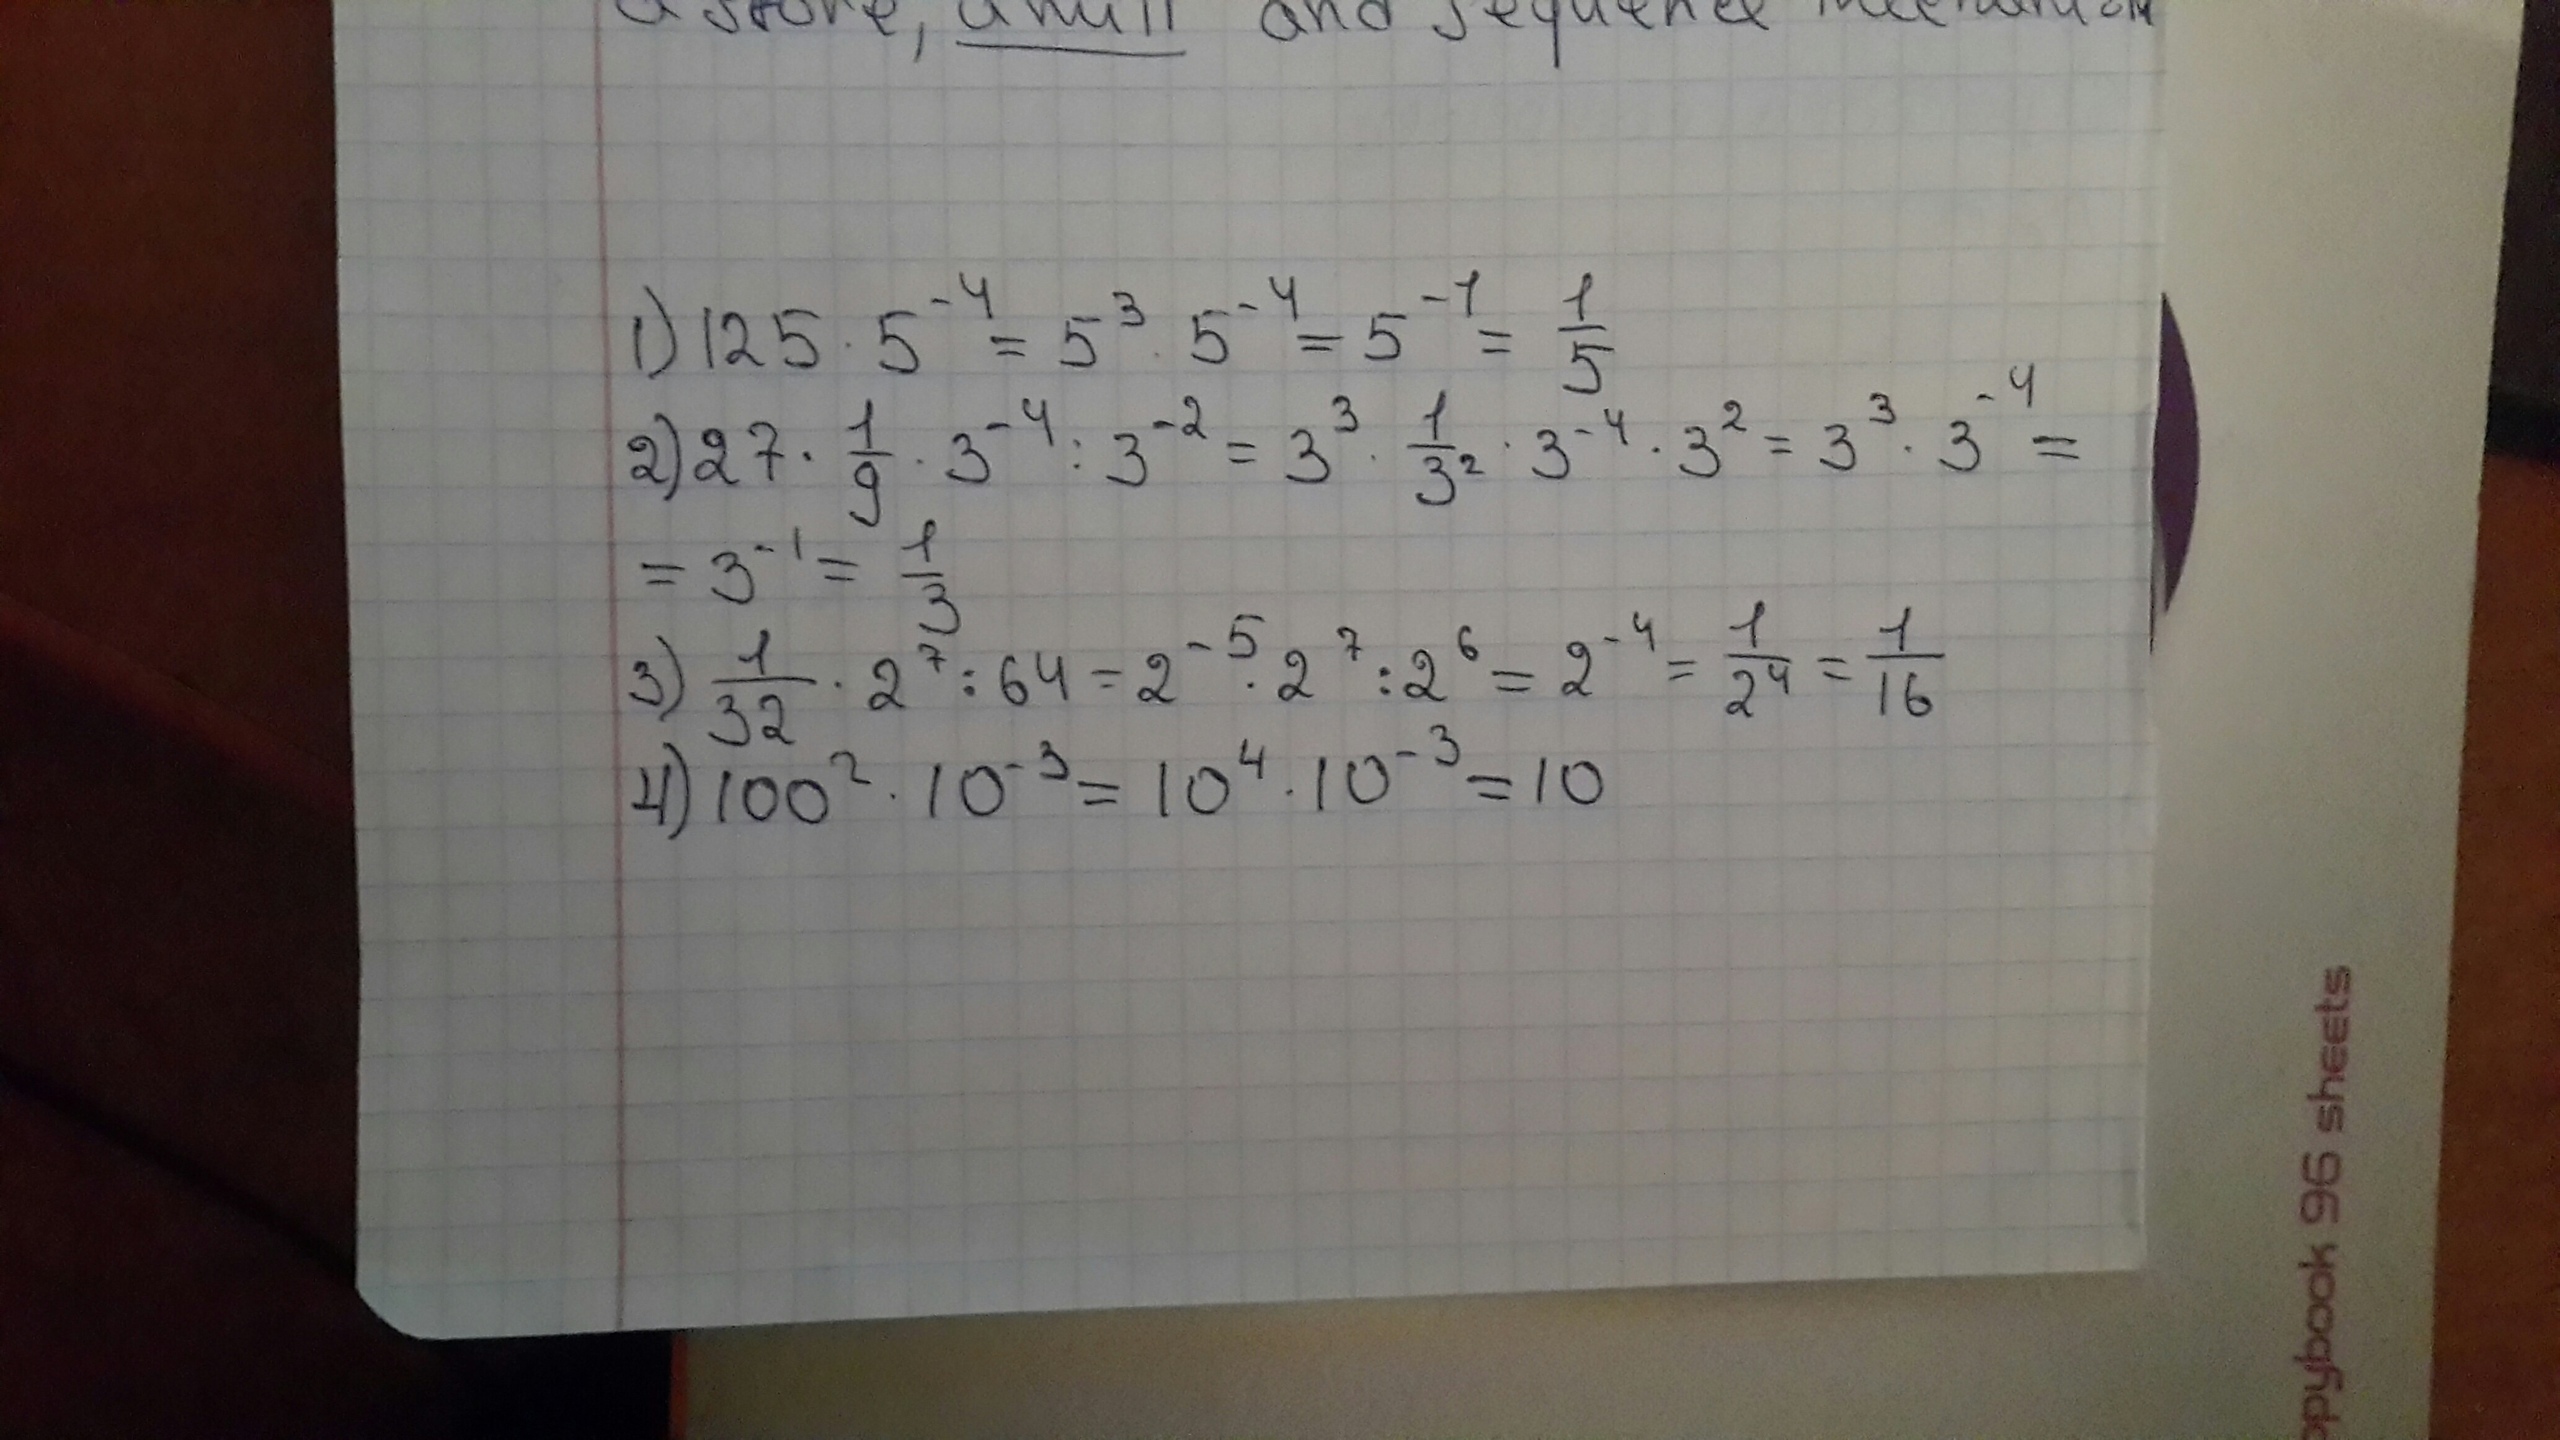 a store, a mill and sequence
1) 125 · 5⁻⁴ = 5³ · 5⁻⁴ = 5⁻¹ = 1/5
2) 27 · 1/9 · 3⁻⁴ : 3⁻² = 3³ · 1/3² · 3⁻⁴ · 3² = 3³ · 3⁻⁴ =
= 3⁻¹ = 1/3
3) 1/32 · 2⁷ : 64 = 2⁻⁵ · 2⁷ : 2⁶ = 2⁻⁴ = 1/2⁴ = 1/16
4) 100² · 10⁻³ = 10⁴ · 10⁻³ = 10
opybook 96 sheets